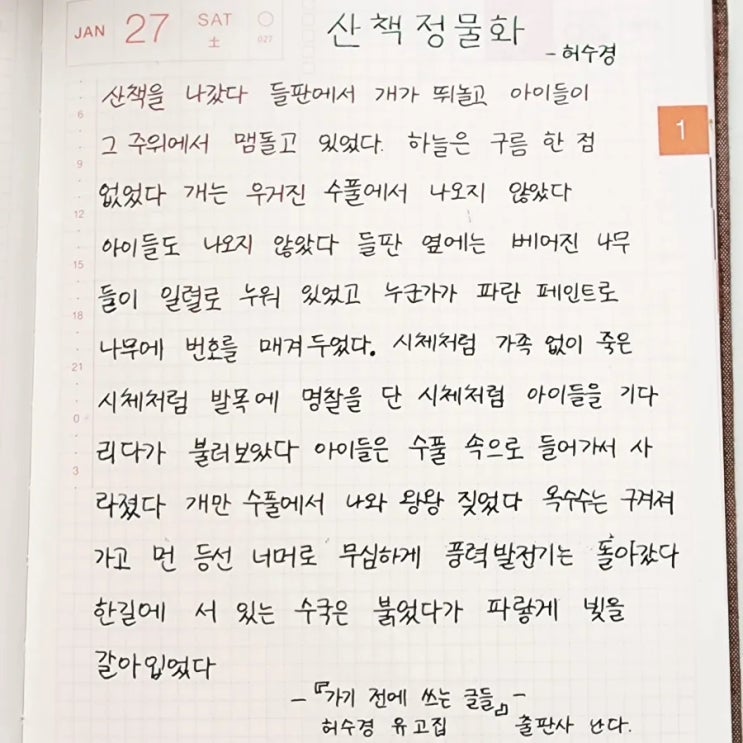 JAN 27 SAT 土 027
산책정물화
- 허수경
산책을 나갔다 들판에서 개가 뛰놀고 아이들이
그 주위에서 맴돌고 있었다. 하늘은 구름 한 점
없었다 개는 우거진 수풀에서 나오지 않았다
아이들도 나오지 않았다 들판 옆에는 베어진 나무
들이 일렬로 누워 있었고 누군가가 파란 페인트로
나무에 번호를 매겨두었다. 시체처럼 가족 없이 죽은
시체처럼 발목에 명찰을 단 시체처럼 아이들을 기다
리다가 불러보았다 아이들은 수풀 속으로 들어가서 사
라졌다 개만 수풀에서 나와 왕왕 짖었다 옥수수는 구겨져
가고 먼 등선 너머로 무심하게 풍력발전기는 돌아갔다
한길에 서 있는 수국은 붉었다가 파랗게 빛을
갈아입었다
- 『가기 전에 쓰는 글들』 -
허수경 유고집 출판사 난다.
1
6
9
12
15
18
21
0
3